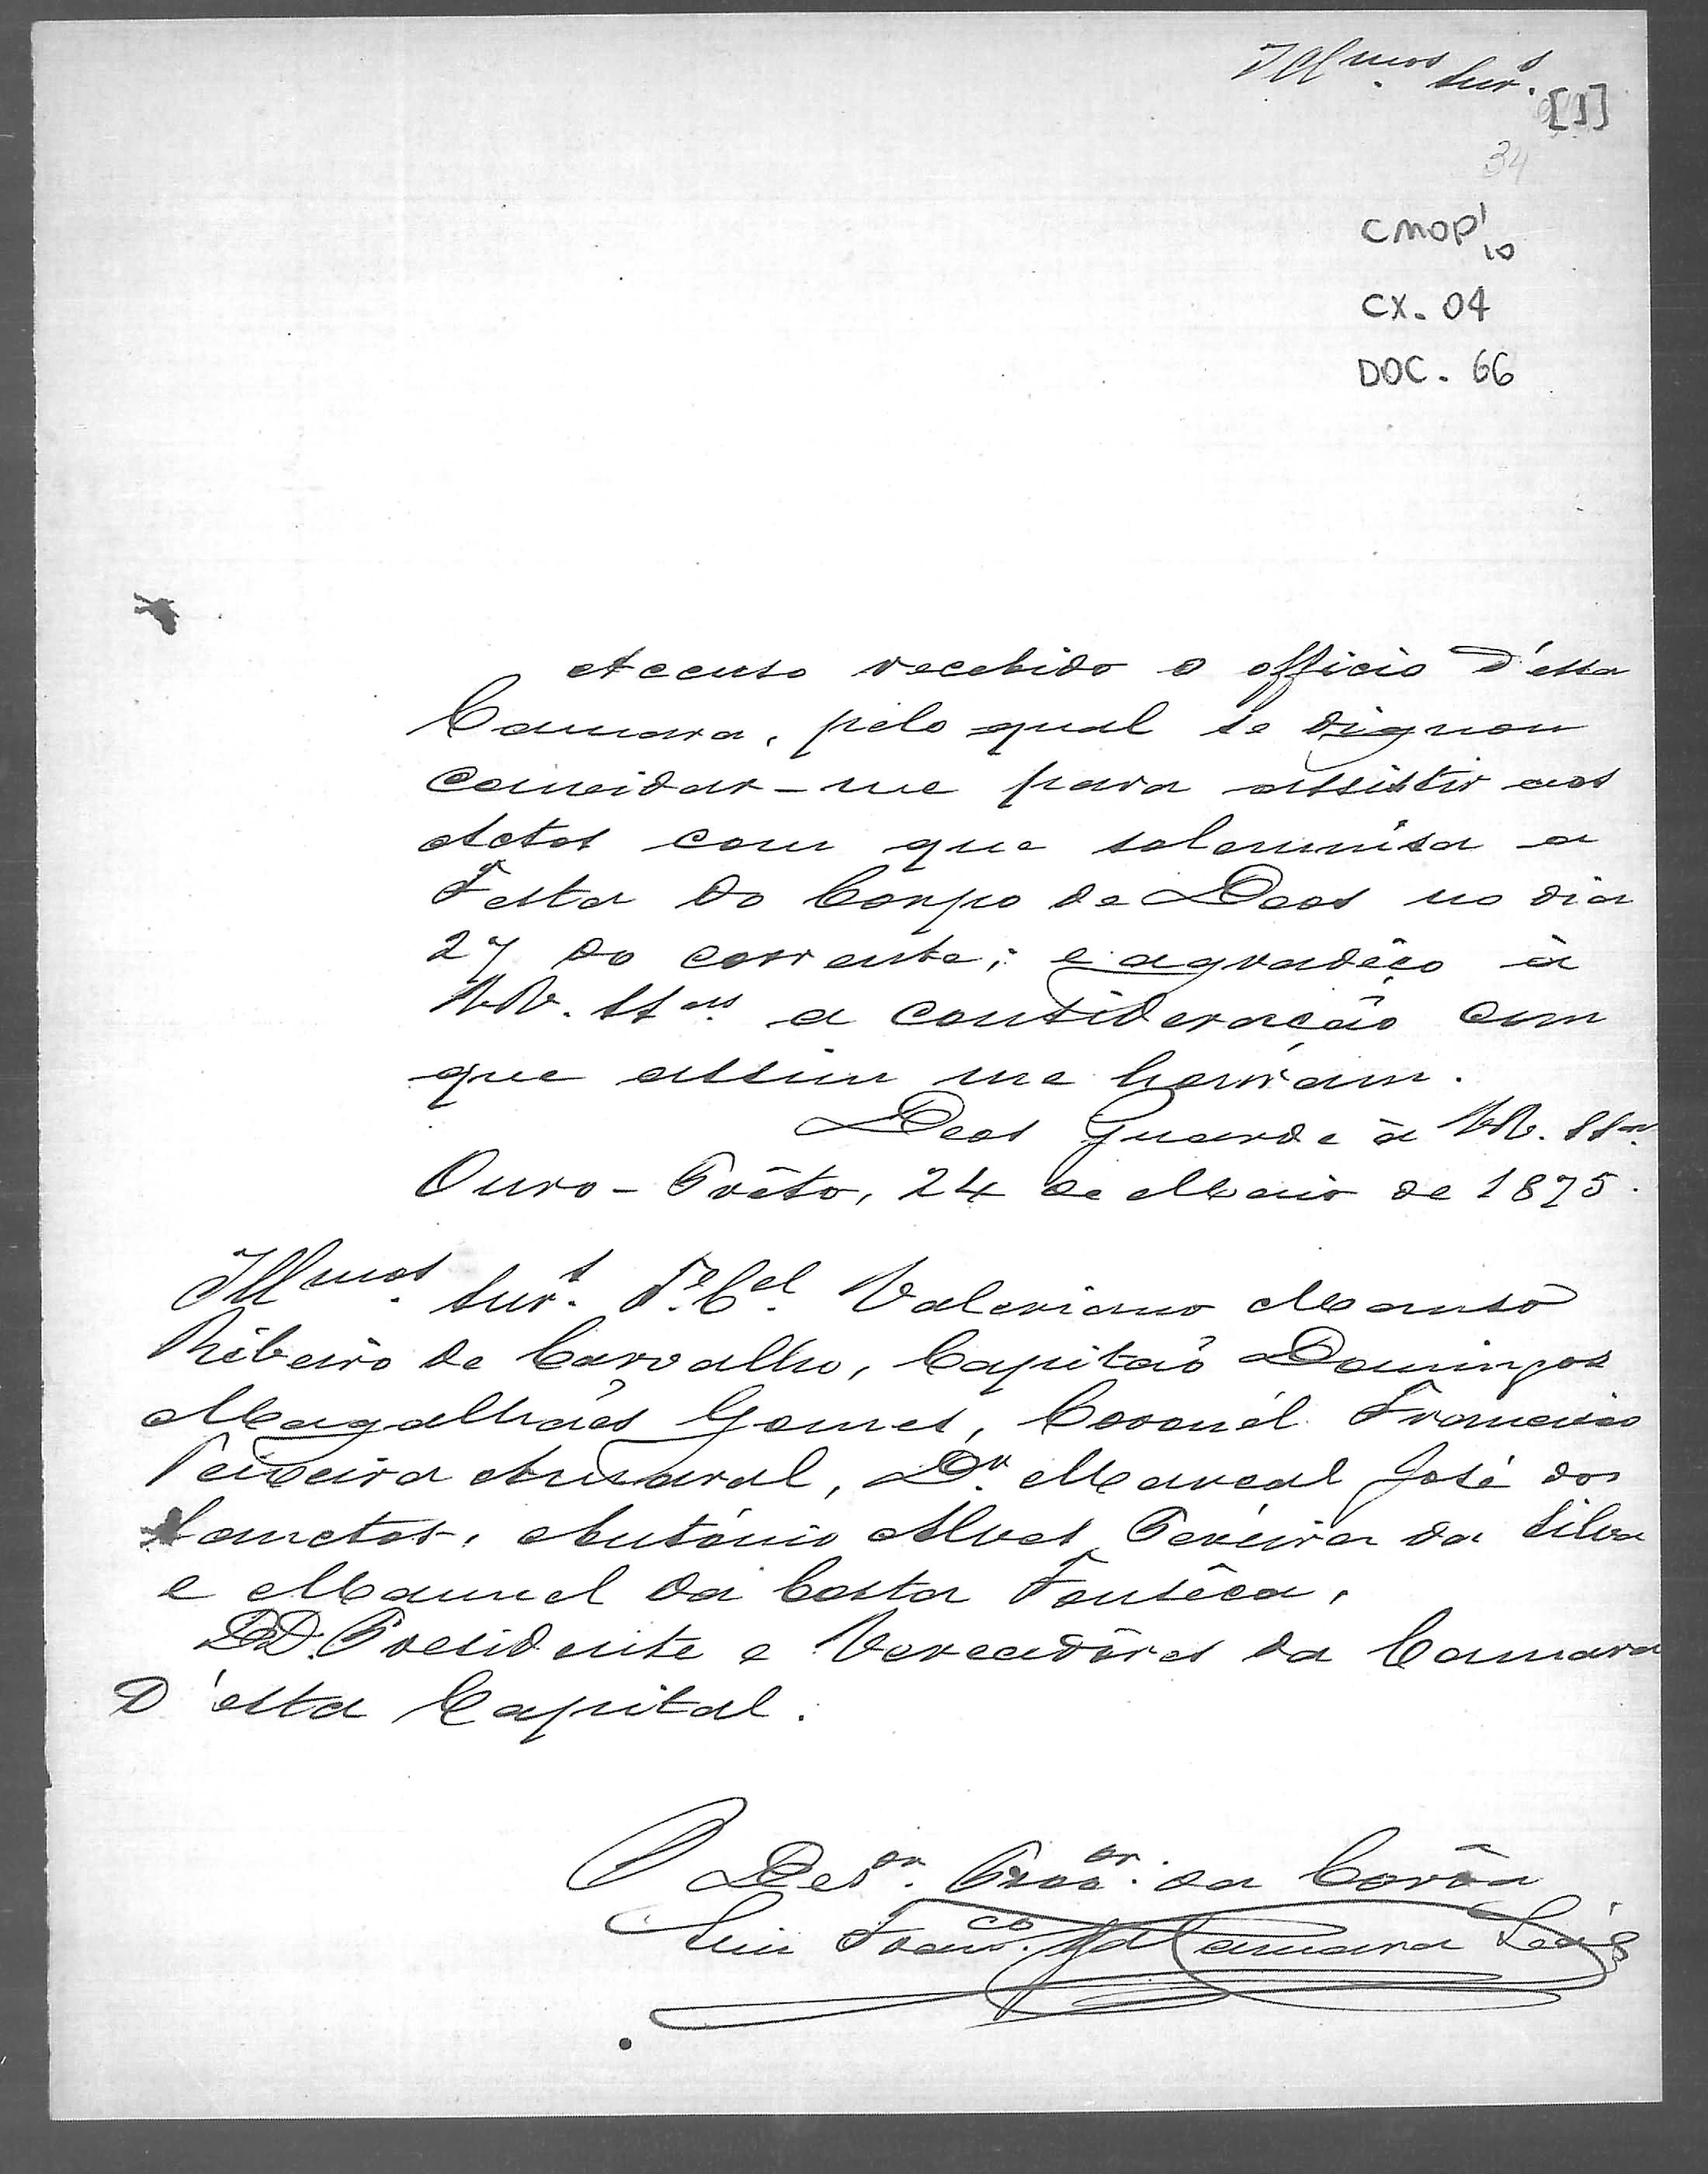 Illmos. Snrs.
[1]
34
CMOP 1
10
CX. 04
DOC. 66
Accuso recebido o officio d'essa
Camara, pelo qual se dignou
convidar-me para assistir aos
Actos com que solemnisa a
Festa do Corpo de Deos no dia
27 do corrente; e agradêço à
VV. SSas. a consideração com
que assim me honrám.
Deos Guarde à VV. SSas.
Ouro-Prêto, 24 de Maio de 1875.
Illmos. Snrs. Te. Cel. Valeriano Manso
Ribeiro de Carvalho, Capitão Domingos
Magalhães Gomes, Coronél Francisco
Teixeira Amaral, Dr. Marcal José dos
Sanctos, António Alves Pereira da Silva
e Manuel da Costa Fonsêca,
DD. Presidente e Vereadôres da Camara
D'esta Capital.
O Desor. Procor. da Corôa
Luiz Franco. da Camara Leál